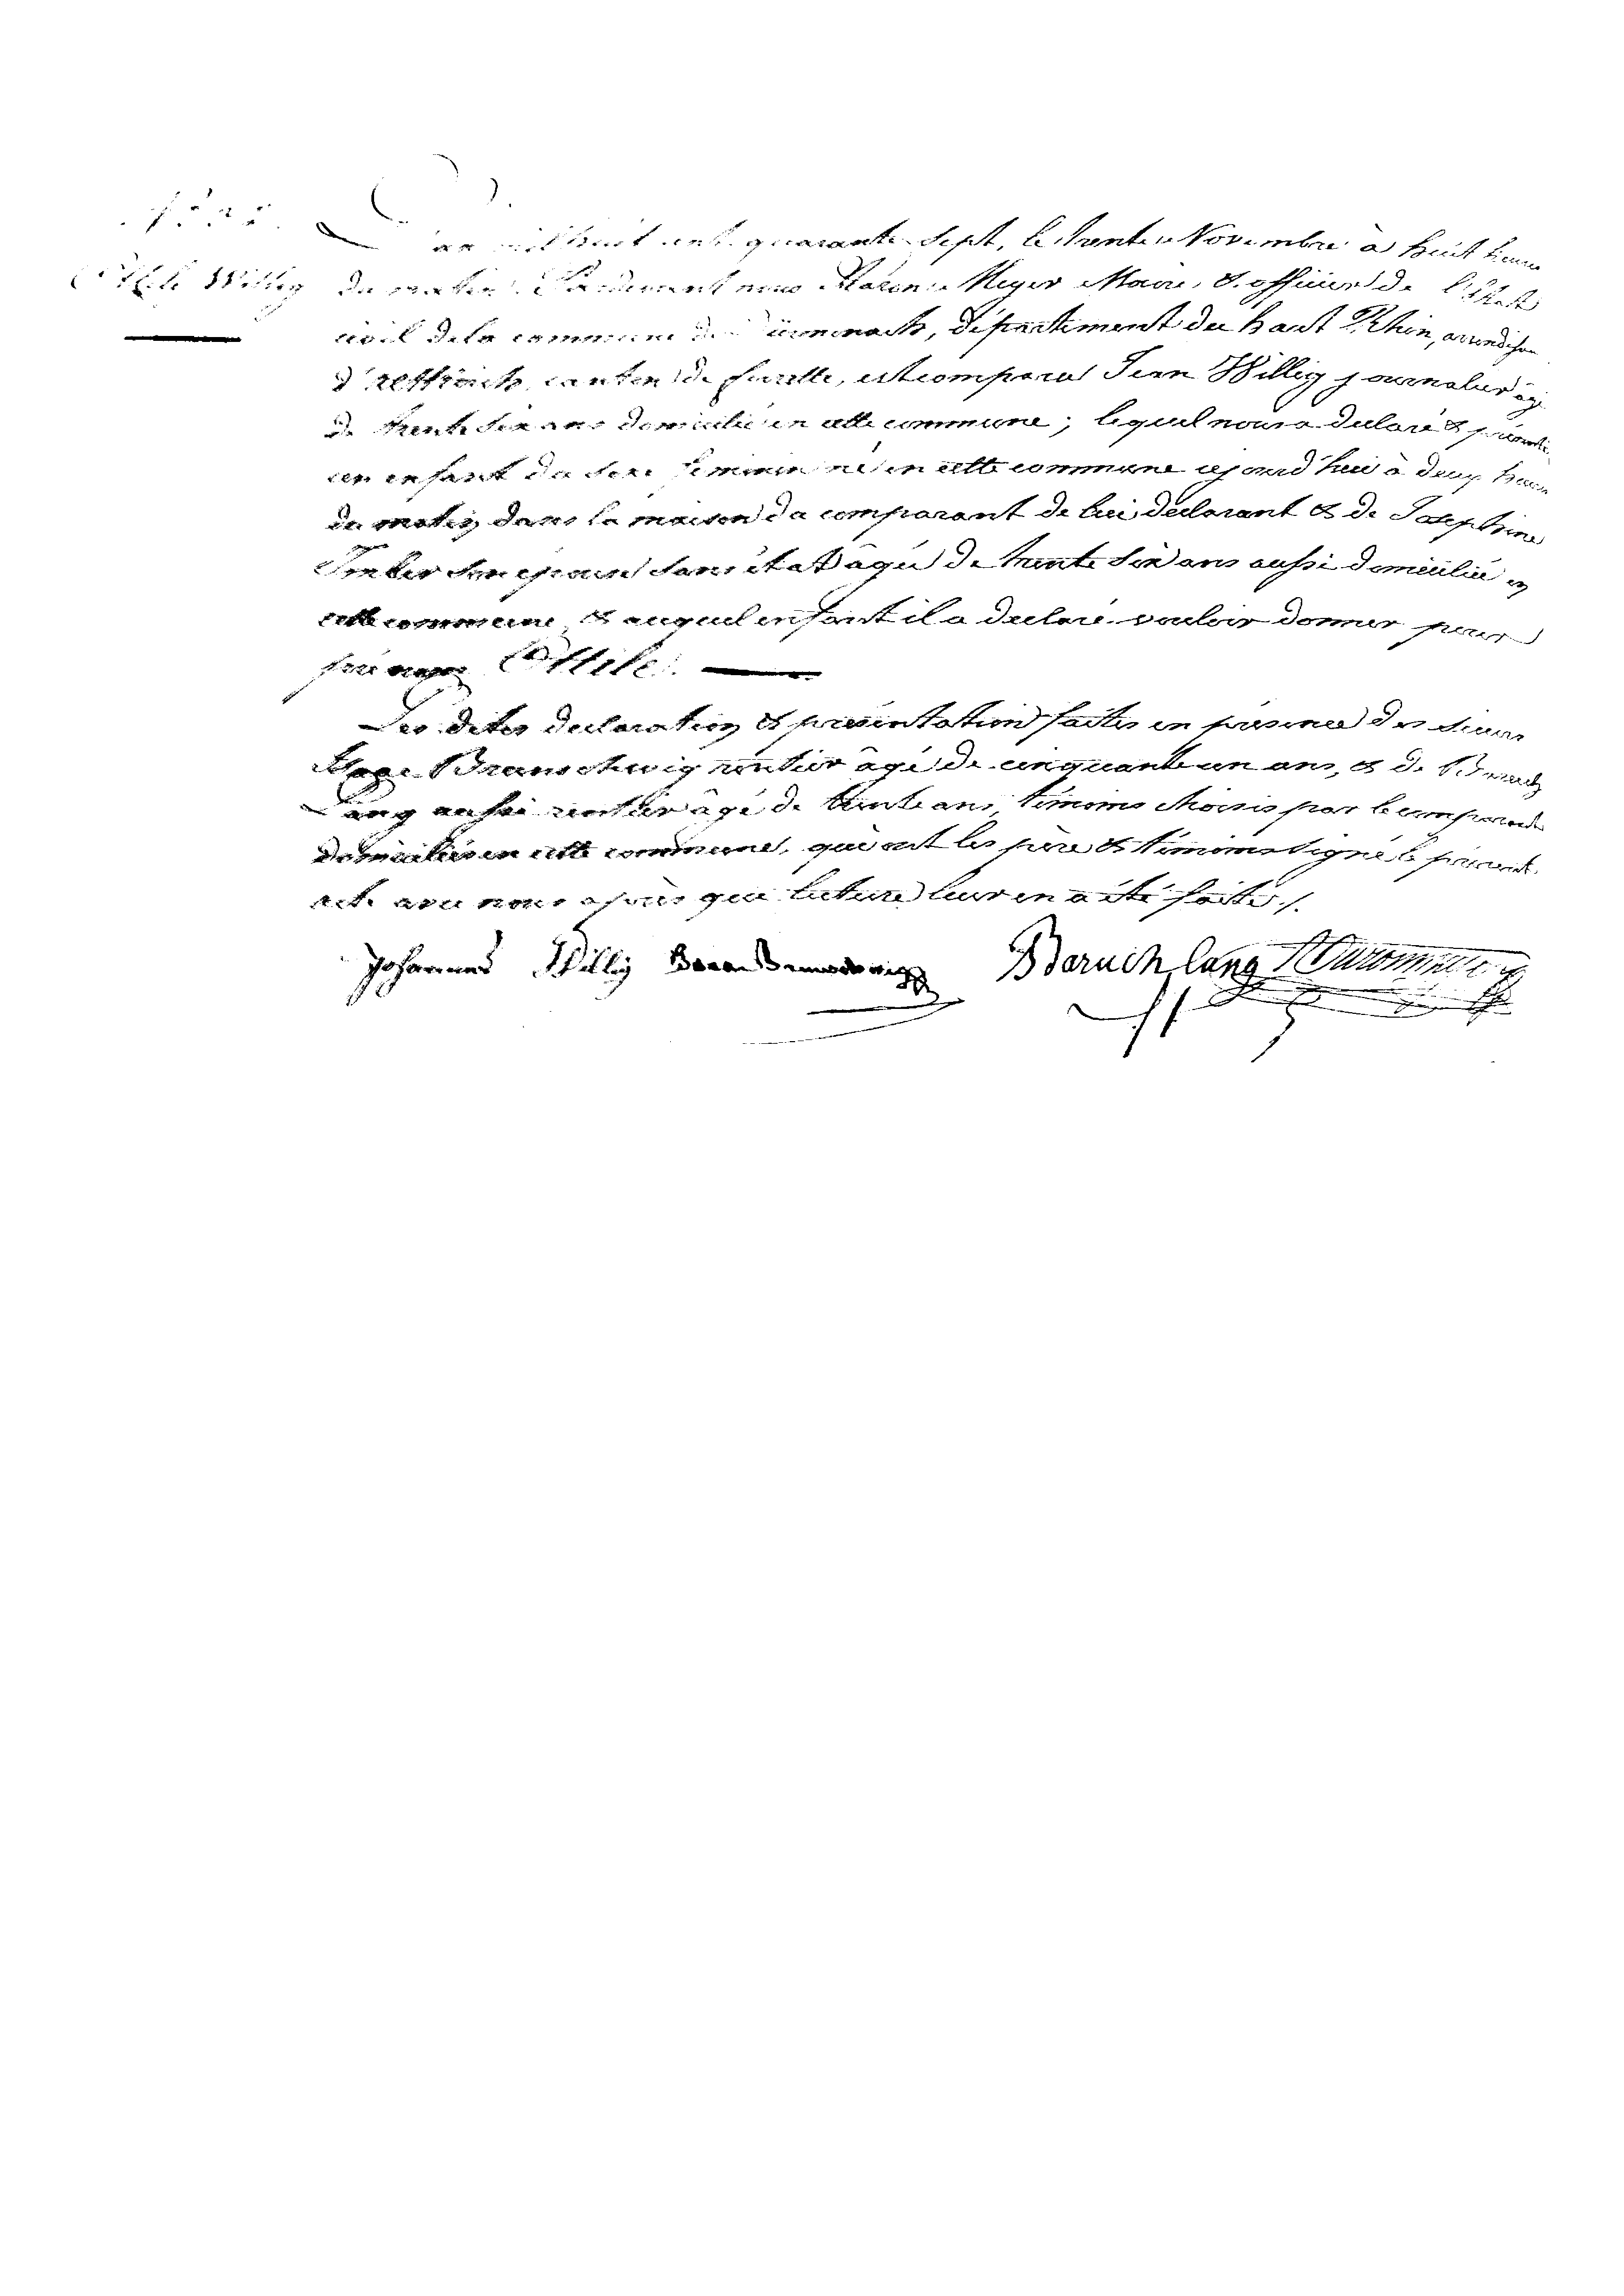 Ottile Willig
L'an mil huit cent quarante sept, le trente Novembre à huit heures
du matin Pardevant nous Aaron Meyer Maire, & officier de l'Etat
civil de la commune de Dürmenach, département du haut Rhin, arrondison
d'altkirch, canton de ferette, est comparu Jean Willig journalier âgé
de trente six ans domicilié en cette commune; lequel nous a declaré & présenté
un enfant du sexe feminin né en cette commune cejourd'hui à deux heures
du matin dans la maison du comparant de lui declarant & de Josephine
son epouse sans état âgée de trente six ans aussi domiciliée en
cette commune & auquel enfant il a declaré vouloir donner pour
prénom Ottile.
Les dites declaration & présentation faites en présence des sieurs
Braunschwig rentier âgé de cinquante un ans, & de Baruch
Lang aussi rentier âgé de trente ans, témoins choisis par le comparant
domiciliés en cette commune, qui ont les père & témoins signé le présent
acte avec nous après que lecture leur en a été faite /.
Johannes Willig
Baruch Lang